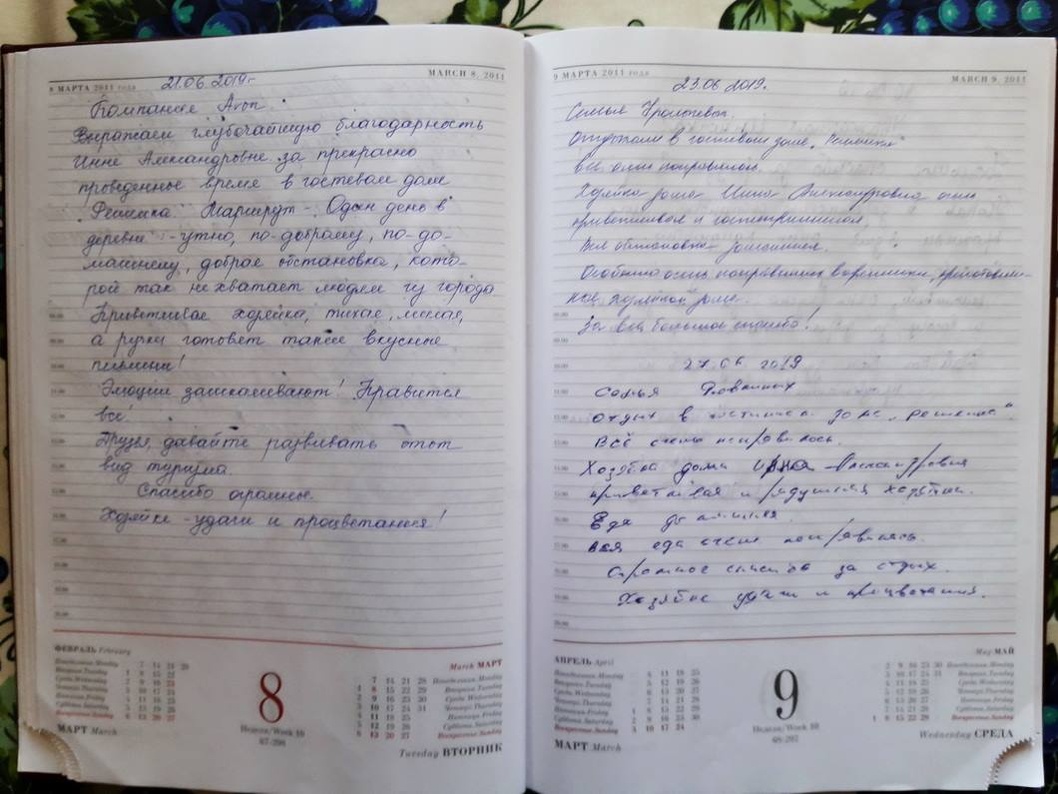 8 МАРТА 2011 года
MARCH 8, 2011
21.06.2019г.
Компания
Выражаем глубочайшую благодарность
Инне Александровне за прекрасно
проведенное время в гостевом доме
"Решимка". Маршрут - Один день в
деревне - утно, по-доброму, по-до-
машнему, добрая обстановка, кото-
рой так не хватает людям из города
Приветливая хозяйка, тихая, милая,
а ручки готовят такие вкусные
пельмени!
Эмоции зашкаливают! Нравится
всё!
Друзья, давайте развивать этот
вид туризма.
Спасибо огромное.
Хозяйке - удачи и процветания!
ФЕВРАЛЬ February
March МАРТ
8
Неделя/Week 10
67-298
МАРТ March
Tuesday ВТОРНИК
9 МАРТА 2011 года
MARCH 9, 2011
23.06 2019г.
Семья
Отдыхали в гостевом доме
всё очень понравилось.
Хозяйка дома Инна Александровна очень
приветливая и гостеприимная
Вся обстановка домашняя.
Особенно очень понравились вареники, приготовлен-
ные хозяйкой дома.
За всё большое спасибо!
27.06 2019
Семья
отдых в гостином доме "Решимка"
Всё очень понравилось.
Хозяйка дома Инна Александровна
приветливая и радушная хозяйка.
Еда домашняя.
вся еда очень понравилась.
Огромное спасибо за отдых.
Хозяйке удачи и процветания.
АПРЕЛЬ April
May МАЙ
9
Неделя/Week 10
68-297
МАРТ March
Wednesday СРЕДА